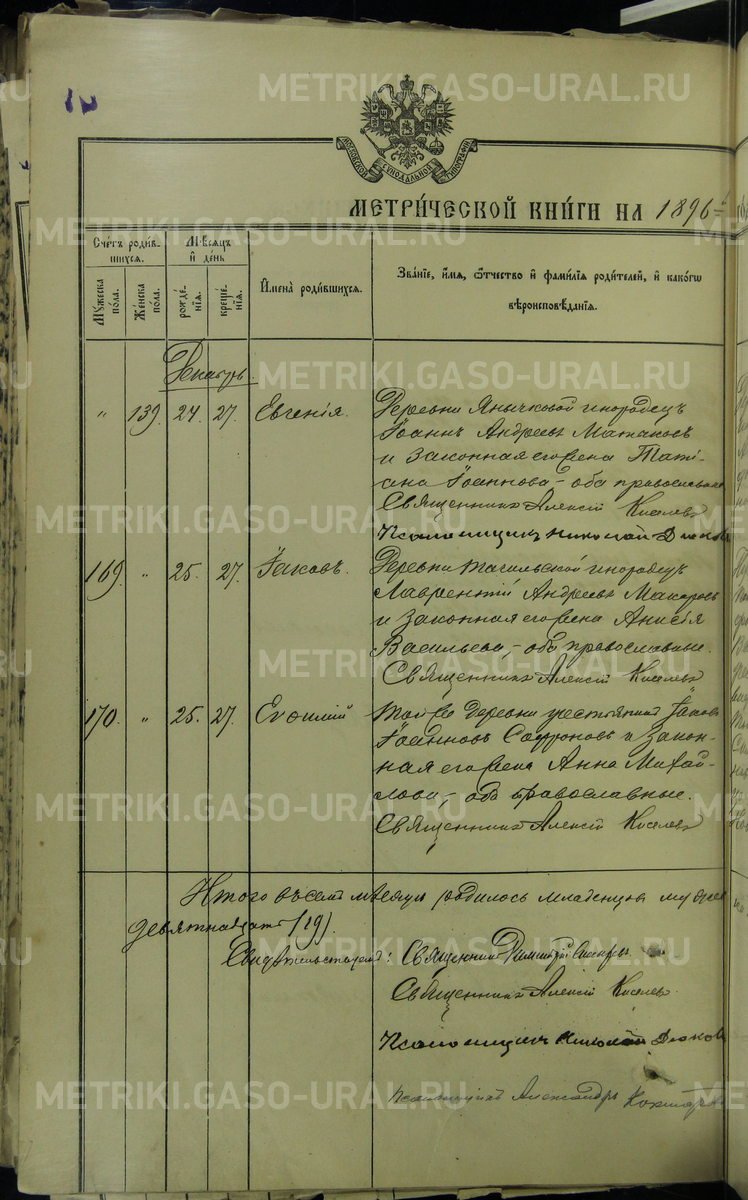 12
METRIKI.GASO-URAL.RU
МОСКОВСКОЙ СѴНОДАЛЬНОЙ ТИПОГРАФІИ
МЕТРИ́ЧЕСКОЙ КНИ́ГИ НА 1896
Сче́тъ роди́вшихся.
Мужеска по́ла.
Же́нска по́ла.
Мѣ́сяцъ и҆ де́нь
рожде́нїѧ.
креще́нїѧ.
И҆мена̀ роди́вшихся.
Зва́нїе, и҆́мѧ, ѻ҆́тчество и҆ фами́лїѧ роди́телей, и҆ како́гѡ
вѣроисповѣ́данїѧ.
Декабрь.
" 139. 24. 27. Евгенія. Деревни Янычковой инородецъ
Іоаннъ Андреевъ Матаковъ
и законная его жена Тати-
ана Іоаннова – оба православные
Священникъ Алексій Киселевъ
Псаломщикъ Николай Дьяковъ
169. " 25. 27. Іаковъ. Деревни Тагильской инородецъ
Лаврентій Андреевъ Макаровъ
и законная его жена Анисія
Васильева, – оба православные.
Священникъ Алексій Киселевъ
170. " 25. 27. Евѳимій Той же деревни крестьянинъ Іаковъ
Іоанновъ Софроновъ и закон-
ная его жена Анна Михай-
лова, – оба православные.
Священникъ Алексій Киселевъ
Итого въ семъ мѣсяцѣ родилось младенцевъ муж
девятнадцать (19).
Свидѣтельствуемъ: Священникъ Димитрій
Священникъ Алексій Киселевъ
Псаломщикъ Николай Дьяковъ
Псаломщикъ Александръ